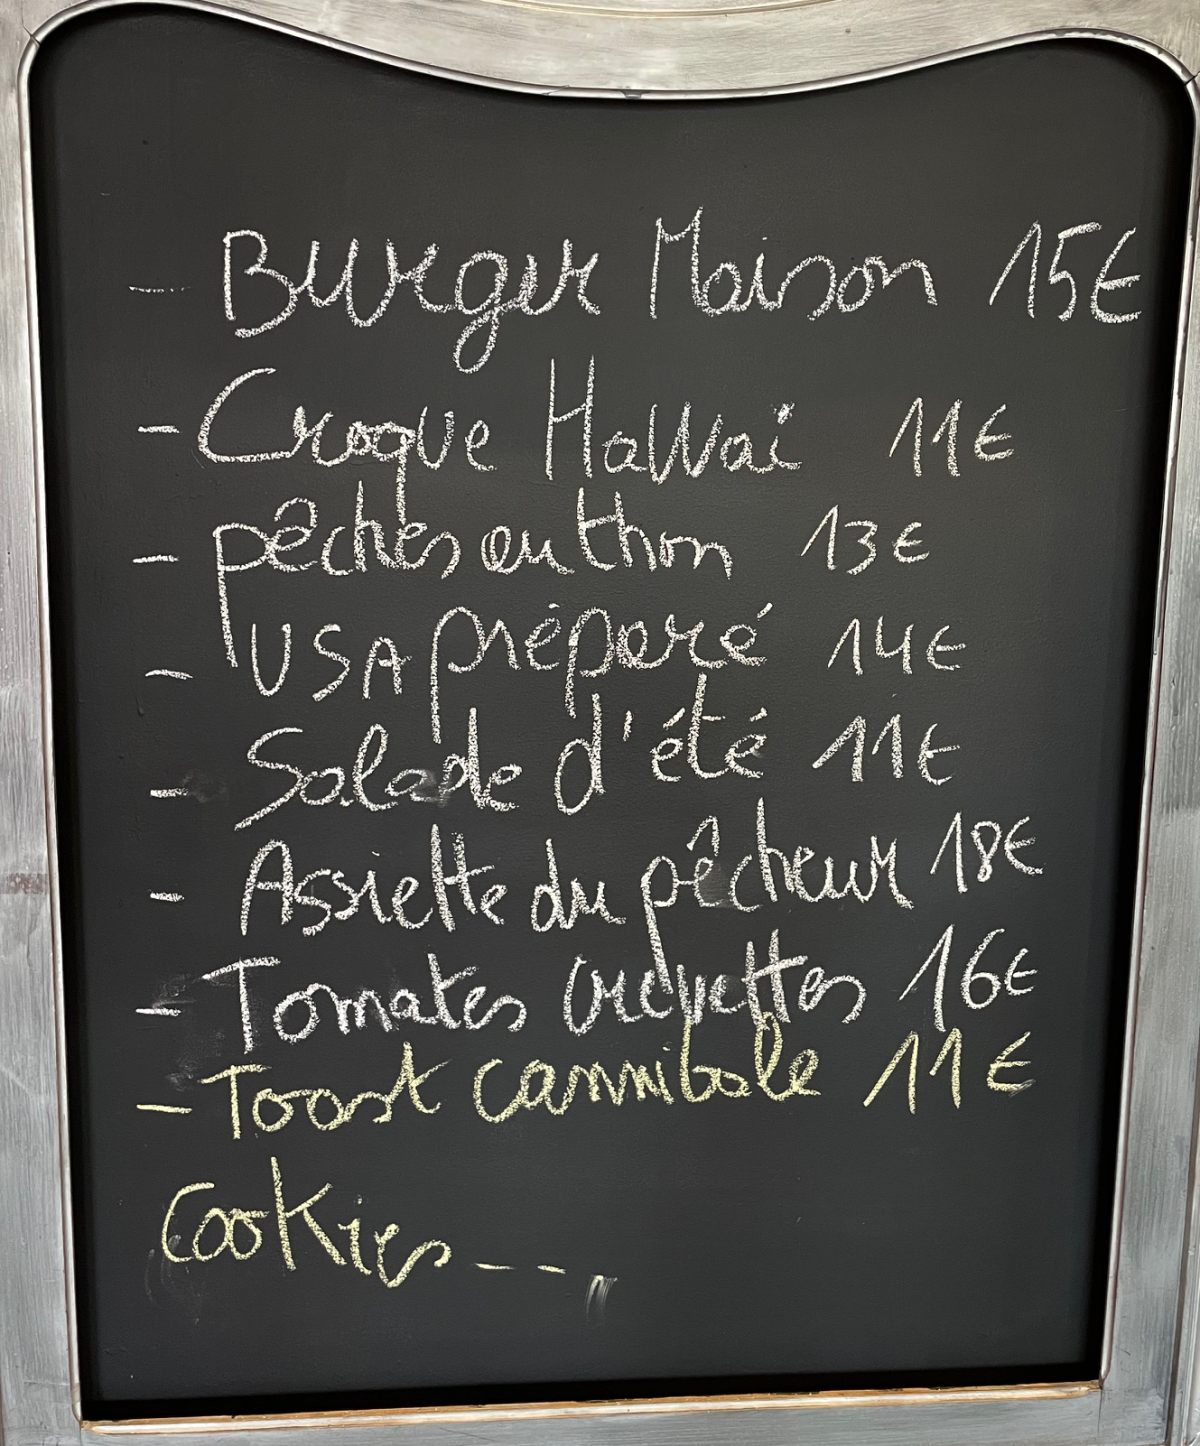 - Burger Maison 15€
- Croque Hawaï 11€
- pêches au thon 13€
- USA préparé 14€
- Salade d'été 11€
- Assiette du pêcheur 18€
- Tomates crevettes 16€
- Toast cannibale 11€
Cookies ---